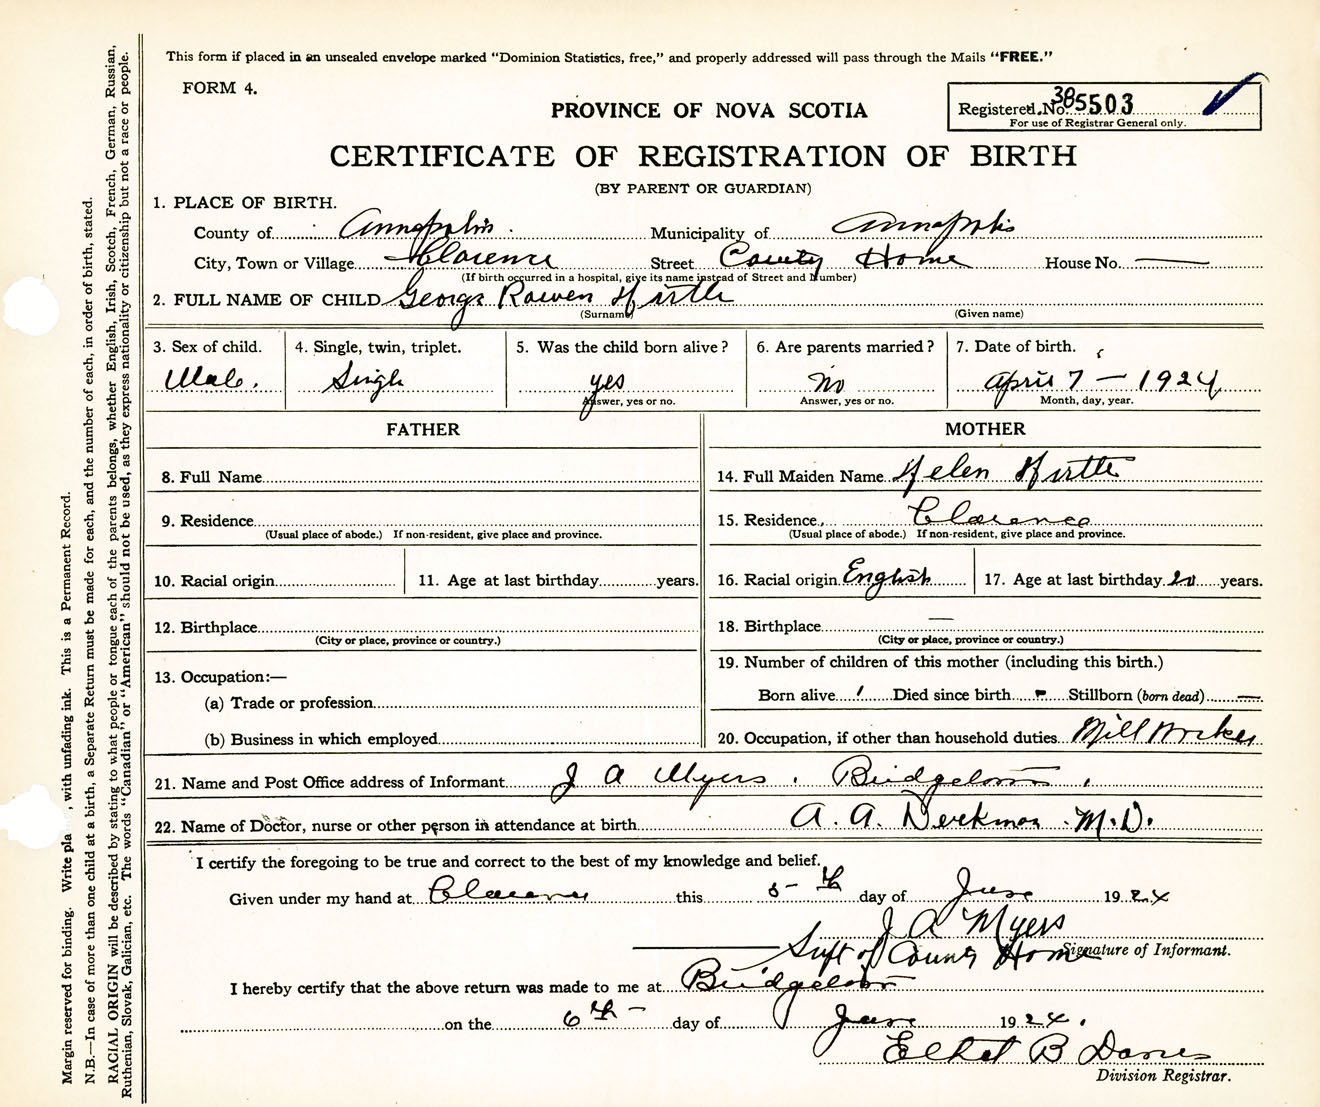 This form if placed in an unsealed envelope marked “Dominion Statistics, free,” and properly addressed will pass through the Mails “FREE.”
FORM 4.
PROVINCE OF NOVA SCOTIA
Registered No. 385503
For use of Registrar General only.
CERTIFICATE OF REGISTRATION OF BIRTH
(BY PARENT OR GUARDIAN)
1. PLACE OF BIRTH.
County of Annapolis Municipality of Annapolis
City, Town or Village Clarence Street County Home House No. —
(If birth occurred in a hospital, give its name instead of Street and Number)
2. FULL NAME OF CHILD George Hirtle
(Surname) (Given name)
3. Sex of child. 4. Single, twin, triplet. 5. Was the child born alive? 6. Are parents married? 7. Date of birth.
Male. Single yes No April 7 — 1924
Answer, yes or no. Answer, yes or no. Month, day, year.
FATHER MOTHER
8. Full Name 14. Full Maiden Name Helen Hirtle
9. Residence 15. Residence, Clarence
(Usual place of abode.) If non-resident, give place and province. (Usual place of abode.) If non-resident, give place and province.
10. Racial origin 11. Age at last birthday years. 16. Racial origin English 17. Age at last birthday 20 years.
12. Birthplace 18. Birthplace —
(City or place, province or country.) (City or place, province or country.)
13. Occupation:— 19. Number of children of this mother (including this birth.)
(a) Trade or profession Born alive 1 Died since birth - Stillborn (born dead) —
(b) Business in which employed 20. Occupation, if other than household duties Mill Worker
21. Name and Post Office address of Informant J A Myers, Bridgetown,
22. Name of Doctor, nurse or other person in attendance at birth A. A. M.D.
I certify the foregoing to be true and correct to the best of my knowledge and belief.
Given under my hand at Clarence this 5-th day of June 1924
J A Myers
Supt of County Home Signature of Informant.
I hereby certify that the above return was made to me at Bridgetown
on the 6th - day of June 1924.
B
Division Registrar.
Margin reserved for binding. Write pla , with unfading ink. This is a Permanent Record.
N.B.—In case of more than one child at a birth, a Separate Return must be made for each, and the number of each, in order of birth, stated.
RACIAL ORIGIN will be described by stating to what people or tongue each of the parents belongs, whether English, Irish, Scotch, French, German, Russian,
Ruthenian, Slovak, Galician, etc. The words “Canadian” or “American” should not be used, as they express nationality or citizenship but not a race or people.